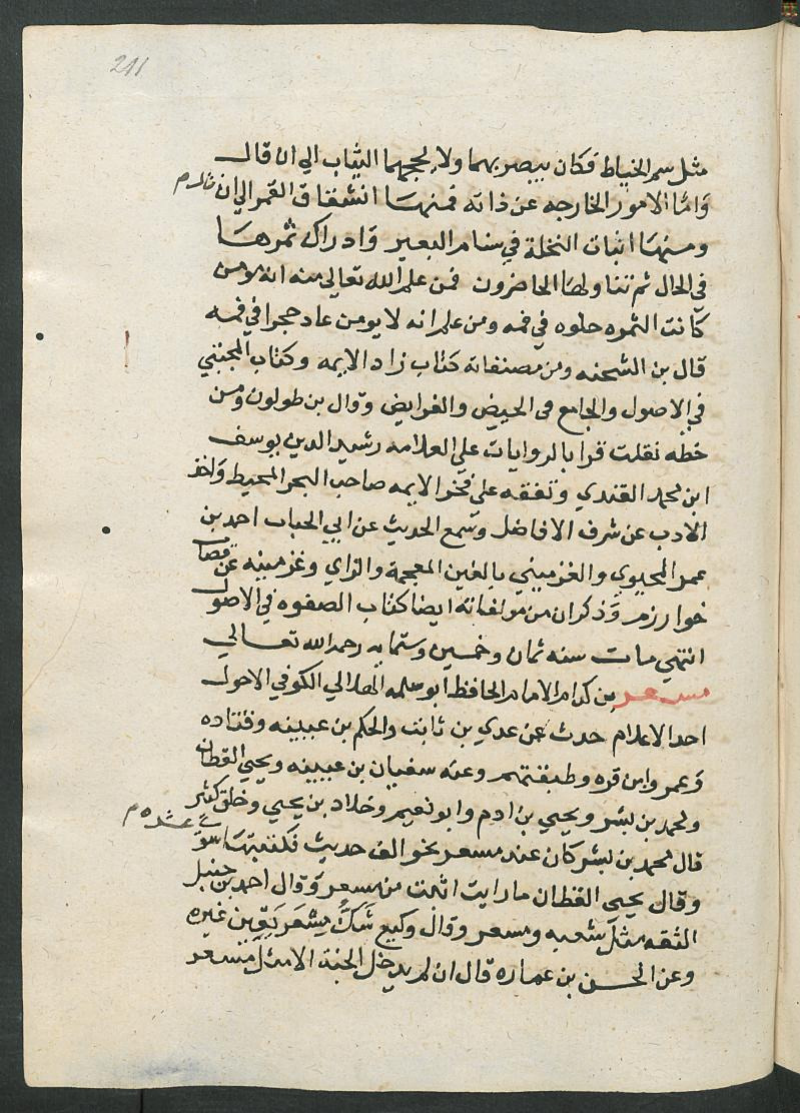 211
مثل سم الخياط فكان يبصر بهما ولا يحجبهما الثياب الى ان قال
واما الامور الخارجه عن ذاته فمنهـا انشقاق القمر الى ان قال م
ومنهـا اثبات النخلة في سنام البعير وادراك ثمرهـا
في الحال ثم تناولها الحاضرون فمن علم الله تعالى منه انه مومن
كانت الثمره حلوه في فمه ومن علم انه لا يومن عاد حجرا في فمه
قال بن الشحنه ومن مصنفاته كتاب زاد الايمه وكتاب المجتبي
في الاصول والجامع في الحيض والفرايض وقال بن طولون ومن
خطه نقلت قرا بالروايات علي العلامه رشيد الدين يوسف
ابن محمد القندي وتفقه على فخر الايمه صاحب البحر المحيط واخذ
الادب عن شرف الافاضل وسمع الحديث عن ابي الجناب احمد بن
عمر الخيوي والغزميني بالغين المعجمة والزاي وغزمينه من قصبات
خوارزم وذكر ان من مولفاته ايضا كتاب الصفوه في الاصول
انتهي مات سنه ثمان وخمسين وستمايه رحمه الله تعـالي
مسـعـر بن كدام الامام الحافظ ابو سلمه الهلالي الكوفي الاحول
احد الاعلام حدث عن عدي بن ثابت والحكم بن عيينه وقتاده
وعمرو ابن مره وطبقتهم وعنه سفيان بن عيينه ويحيي القطان
ومحمد بن بشر ويحيي بن ادم وابو نعيم وخلاد بن يحيي وخلق كثير
قال محمد بن بشر كان عند مسعر نحو الف حديث فكتبتها سوى عشره م
وقال يحيي القطان ما رايت اثبت من مسعر وقال احمد بن حنبل
الثقه مثل شعبه ومسعر وقال وكيع شَكُّ مِسْعَر يقين غيره
وعن الحسن بن عماره قال ان لم يدخل الجنة الا مثل مسعر